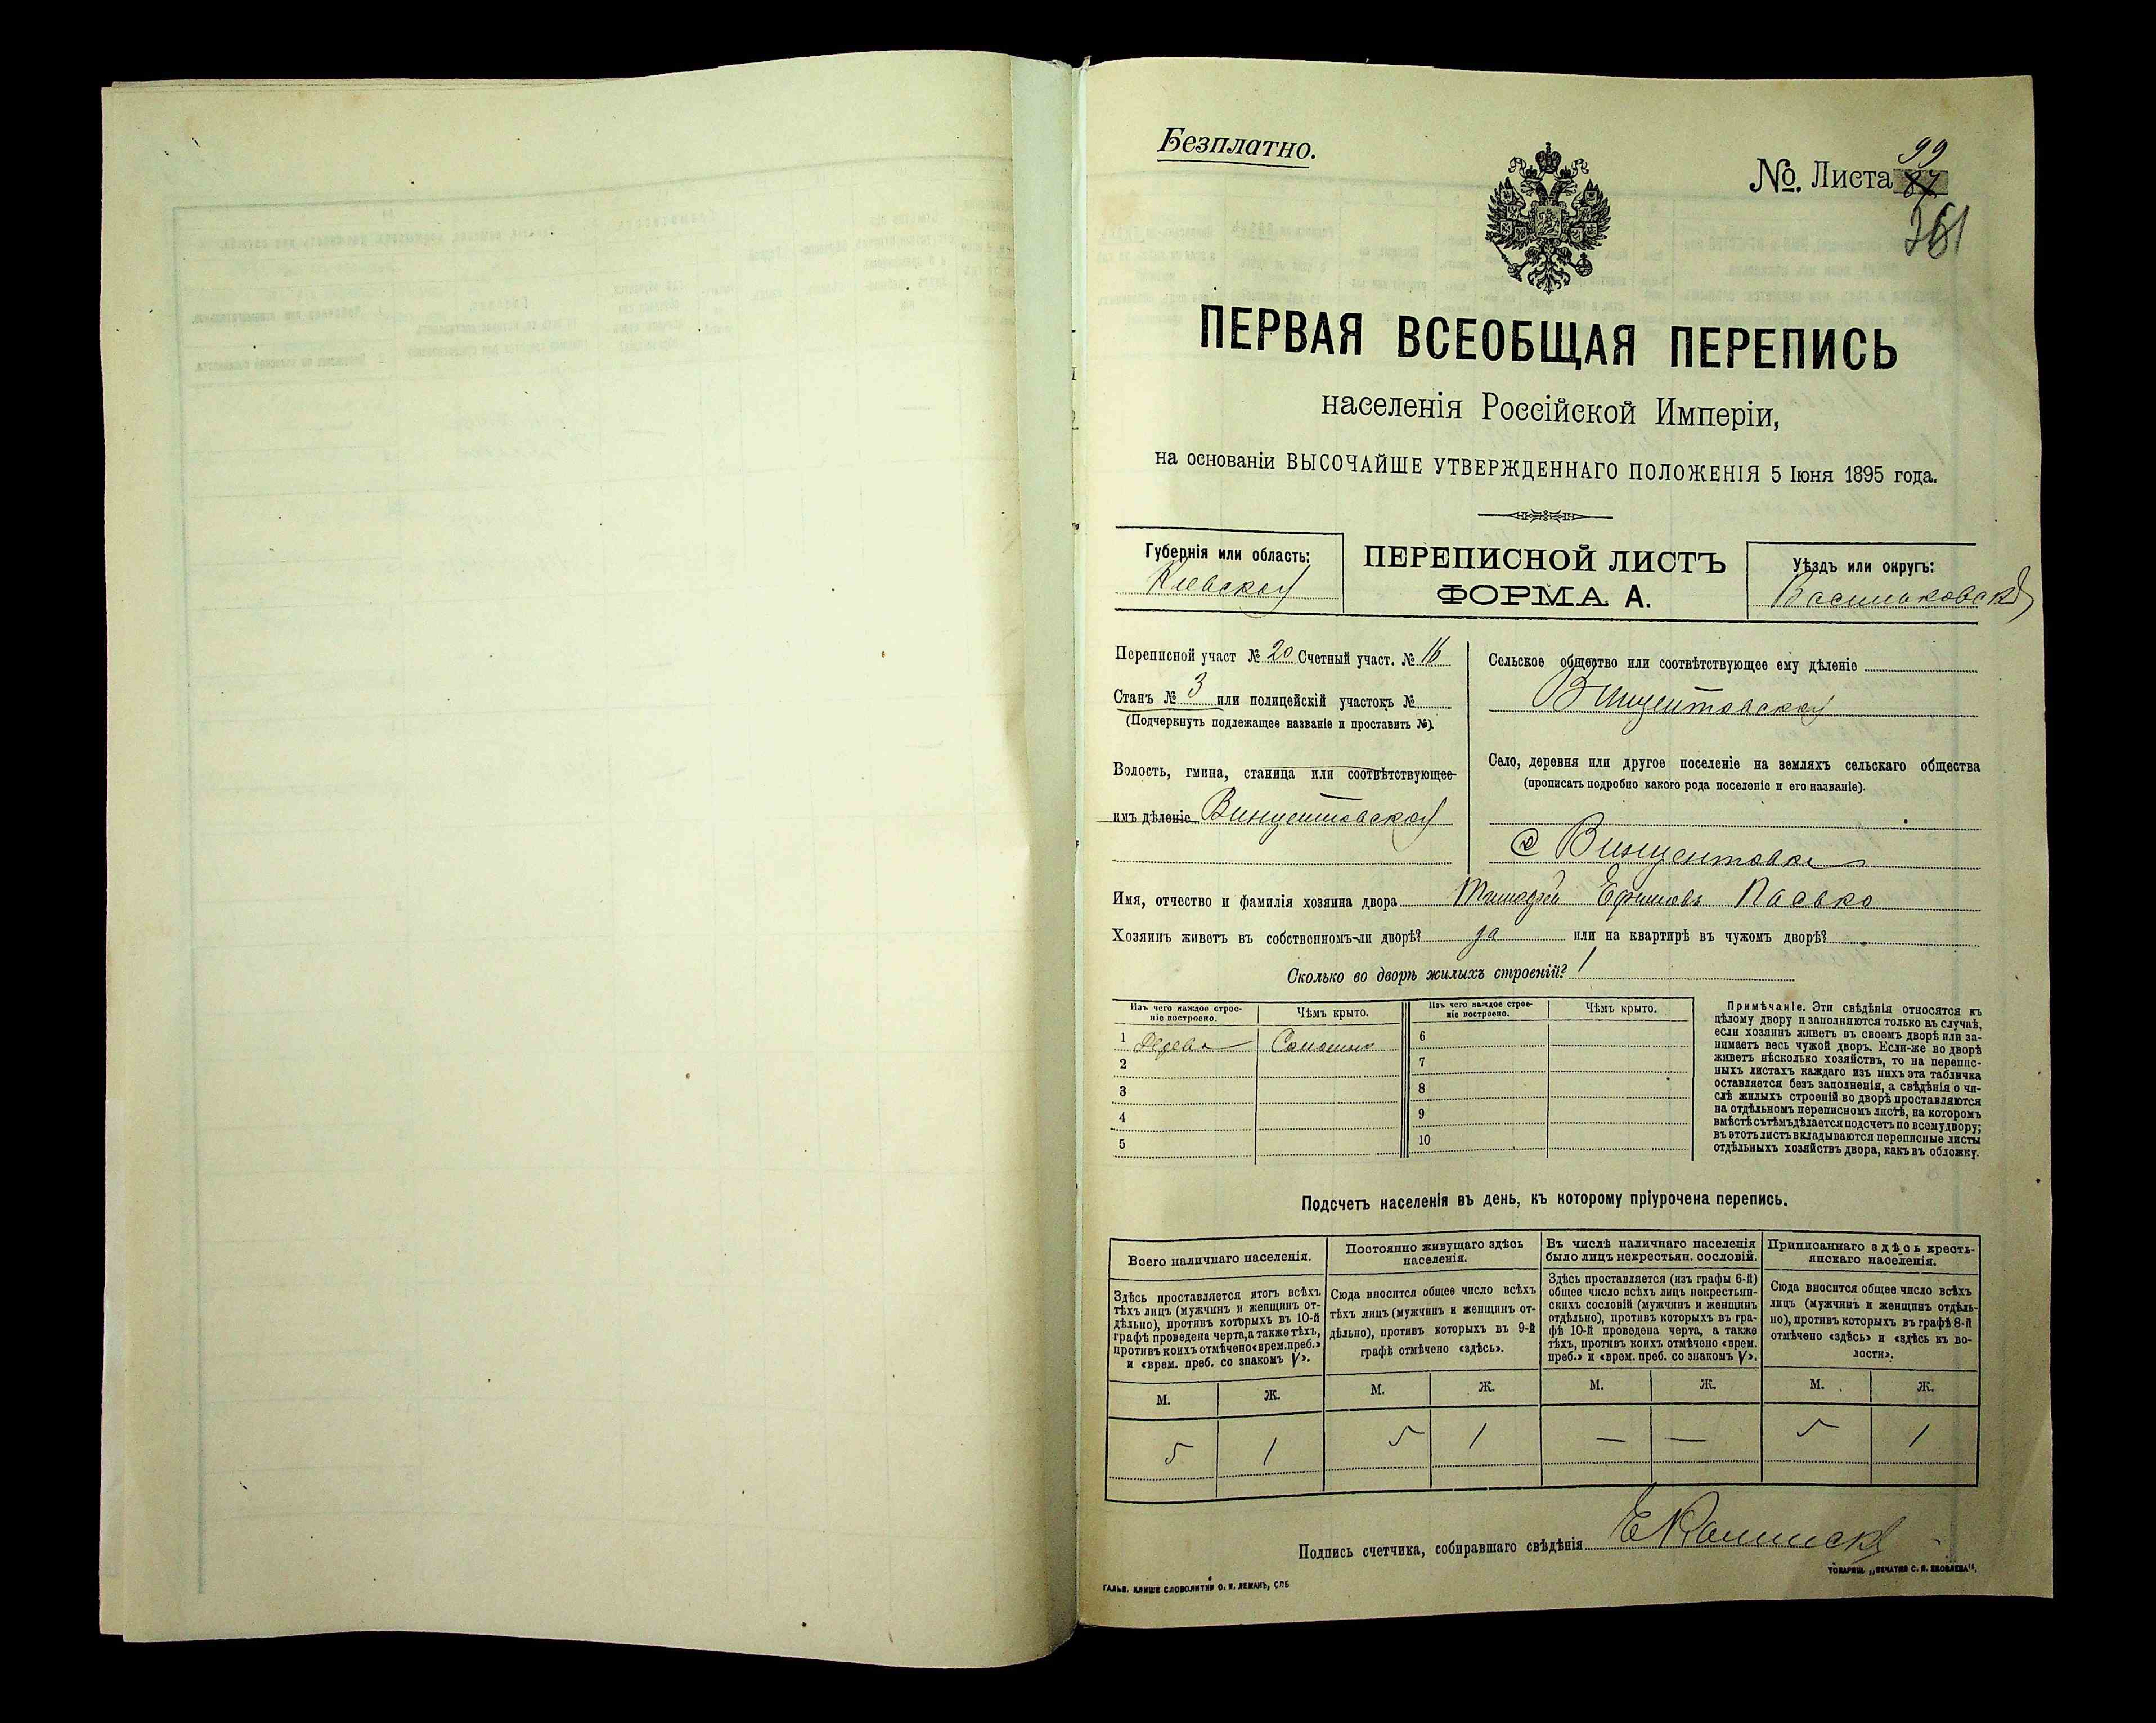 Безплатно.
№. Листа 99
87
361
ПЕРВАЯ ВСЕОБЩАЯ ПЕРЕПИСЬ
населенія Россійской Имперіи,
на основаніи ВЫСОЧАЙШЕ УТВЕРЖДЕННАГО ПОЛОЖЕНІЯ 5 Іюня 1895 года.
Губернія или область:
Кіевская
ПЕРЕПИСНОЙ ЛИСТЪ
ФОРМА А.
Уѣздъ или округъ:
Васильковскій
Переписной участ № 20 Счетный участ. № 16
Станъ № 3 или полицейскій участокъ №
(Подчеркнуть подлежащее названіе и проставить №).
Волость, гмина, станица или соотвѣтствующее
имъ дѣленіе Винцентовская
Сельское общество или соотвѣтствующее ему дѣленіе
Винцентовская
Село, деревня или другое поселеніе на земляхъ сельскаго общества
(прописать подробно какого рода поселеніе и его названіе).
с Винцентовка
Имя, отчество и фамилія хозяина двора Ефимовъ Пасько
Хозяинъ живетъ въ собственномъ-ли дворѣ? да или на квартирѣ въ чужомъ дворѣ?
Сколько во дворѣ жилыхъ строеній? 1
Изъ чего каждое строе-
ніе построено.
Чѣмъ крыто.
Изъ чего каждое строе-
ніе построено.
Чѣмъ крыто.
1 дерева Соломою
2
3
4
5
6
7
8
9
10
Примѣчаніе. Эти свѣдѣнія относятся къ
цѣлому двору и заполняются только въ случаѣ,
если хозяинъ живетъ въ своемъ дворѣ или за-
нимаетъ весь чужой дворъ. Если-же во дворѣ
живетъ нѣсколько хозяйствъ, то на перепис-
ныхъ листахъ каждаго изъ нихъ эта табличка
оставляется безъ заполненія, а свѣдѣнія о чи-
слѣ жилыхъ строеній во дворѣ проставляются
на отдѣльномъ переписномъ листѣ, на которомъ
вмѣстѣ съ тѣмъ дѣлается подсчетъ по всему двору;
въ этотъ листъ вкладываются переписные листы
отдѣльныхъ хозяйствъ двора, какъ въ обложку.
Подсчетъ населенія въ день, къ которому пріурочена перепись.
Всего наличнаго населенія.
Здѣсь проставляется итогъ всѣхъ
тѣхъ лицъ (мужчинъ и женщинъ от-
дѣльно), противъ которыхъ въ 10-й
графѣ проведена черта, а также тѣхъ,
противъ коихъ отмѣчено «врем. преб.»
и «врем. преб. со знакомъ V».
Постоянно живущаго здѣсь
населенія.
Сюда вносится общее число всѣхъ
тѣхъ лицъ (мужчинъ и женщинъ от-
дѣльно), противъ которыхъ въ 9-й
графѣ отмѣчено «здѣсь».
Въ числѣ наличнаго населенія
было лицъ некрестьян. сословій.
Здѣсь проставляется (изъ графы 6-й)
общее число всѣхъ лицъ некрестьян-
скихъ сословій (мужчинъ и женщинъ
отдѣльно), противъ которыхъ въ гра-
фѣ 10-й проведена черта, а также
тѣхъ, противъ коихъ отмѣчено «врем.
преб.» и «врем. преб. со знакомъ V».
Приписаннаго здѣсь кресть-
янскаго населенія.
Сюда вносится общее число всѣхъ
лицъ (мужчинъ и женщинъ отдѣль-
но), противъ которыхъ въ графѣ 8-й
отмѣчено «здѣсь» и «здѣсь къ во-
лости».
М. Ж. М. Ж. М. Ж. М. Ж.
5 1 5 1 — — 5 1
Подпись счетчика, собиравшаго свѣдѣнія
ГАЛЬВ. КЛИШЕ СЛОВОЛИТНИ О. И. ЛЕМАНЪ, СПБ
ТОВАРИЩ. „ПЕЧАТНЯ С. П. ЯКОВЛЕВА“.